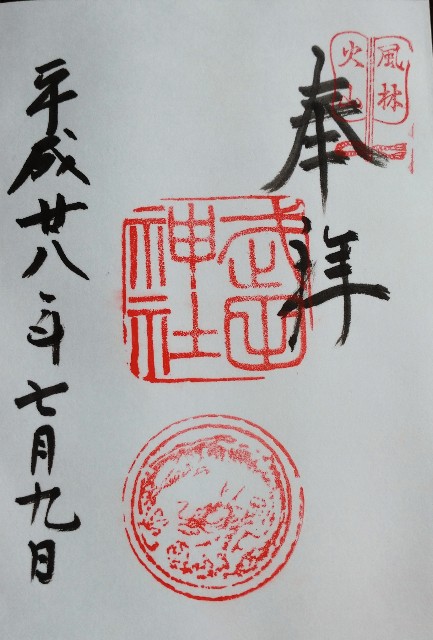 風林
火山
奉拝
武田
神社
平成廿八年七月九日